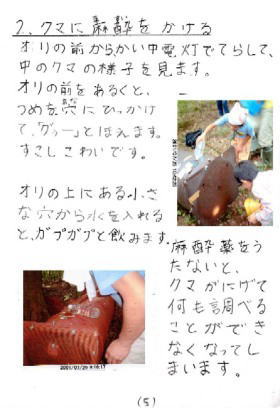 2、クマに麻酔をかける
オリの前からかい中電灯でてらして、
中のクマの様子を見ます。
オリの前をあるくと、
つめを穴にひっかけ
て、「グゥー」とほえます。
すこしこわいです。
オリの上にある小さ
な穴から水を入れる
と、ガブガブと飲みます。
麻酔薬をう
たないと、
クマがにげて
何も調べる
ことができ
なくなってし
まいます。
(5)